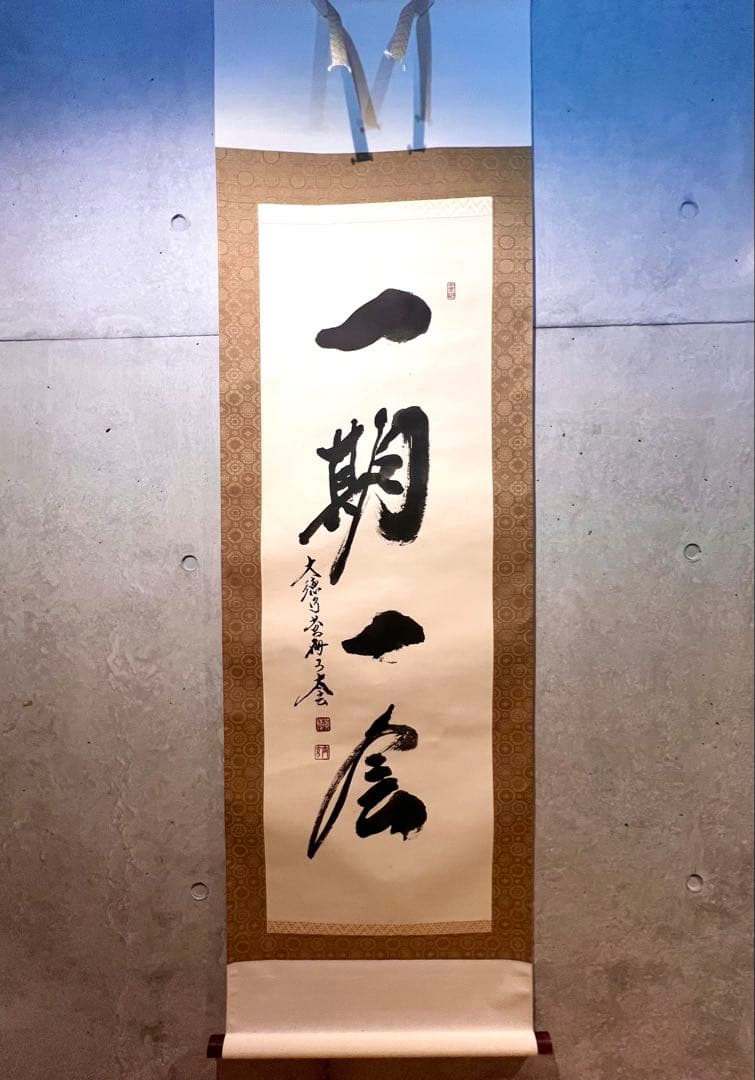 一期一会
大徳